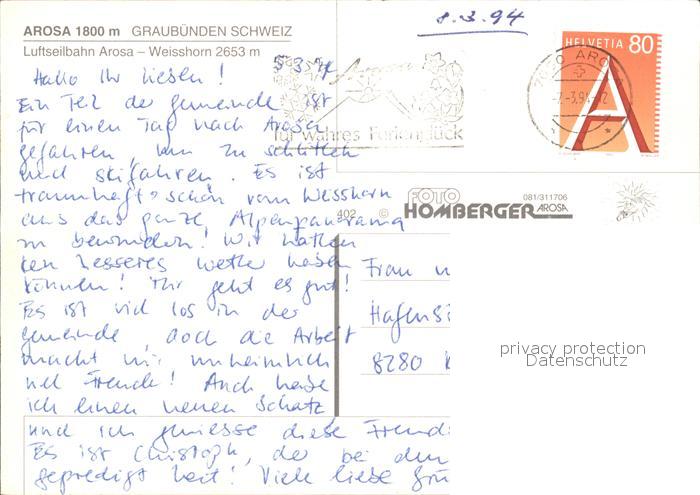 8.3.94
AROSA 1800 m GRAUBÜNDEN SCHWEIZ
Luftseilbahn Arosa – Weisshorn 2653 m
HELVETIA 80
A
7050 AROSA
-7.-3.94-12
Arosa
für wahres Ferienglück
5.3.94
Hallo Ihr lieben!
Ein Teil der gemeinde ist
für einen Tag nach Arosa
gefahren, um zu schlitteln
und skifahren. Es ist
traumhaft schön vom Weisshorn
aus das ganze Alpenpanorama
zu bewundern! Wir hätten
kein besseres wetter haben
können! Mir geht es gut!
Es ist viel los in der
gemeinde, doch die Arbeit
macht mir unheimlich
viel Freude! Auch habe
ich einen neuen Schatz
und ich geniesse diese Freund
Es ist Christoph, der bei den
gepredigt hat! Viele liebe Grü
FOTO
HOMBERGER AROSA
081/311706
402 ©
Frau
8280 K
privacy protection
Datenschutz